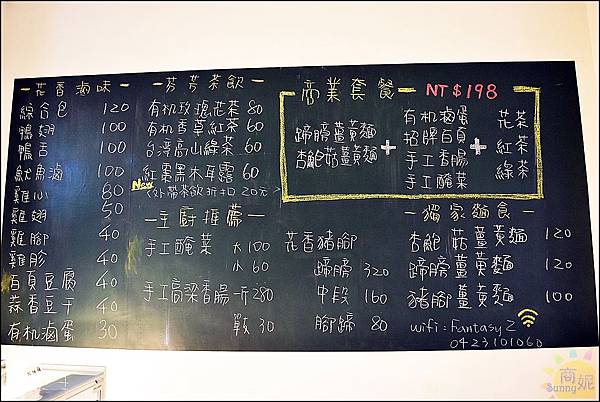 花香滷味
綜合包 120
鴨翅 100
鴨舌 100
魷魚滷 100
雞心 80
雞翅 50
雞腳 40
雞胗 40
百頁豆腐 40
蒜香豆干 40
有机滷蛋 30
芳芳茶飲
有机玫瑰花茶 80
有机香草紅茶 60
台湾高山綠茶 60
紅棗黑木耳露 60
New
(外帶茶飲折扣20元)
主廚推薦
手工醃菜 大 100
小 60
手工高粱香腸 一斤 280
戰 30
商業套餐 NT$198
蹄膀薑黃麵
杏鮑菇薑黃麵
+
有机滷蛋
招牌百頁
手工香腸
手工醃菜
+
花茶
紅茶
綠茶
花香豬腳
蹄膀 320
中段 160
腳蹄 80
獨家麵食
杏鮑菇薑黃麵 120
蹄膀薑黃麵 120
豬腳薑黃麵 100
wifi:Fantasy2
0423101060
商妮
Sunny